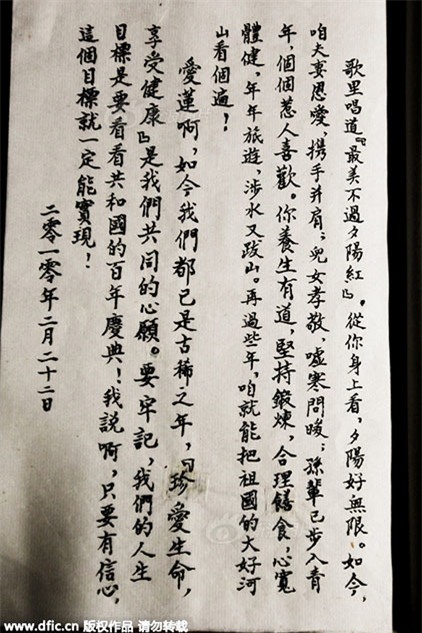 歌里唱道『最美不過夕陽紅』。從你身上看，夕陽好無限。如今，
咱夫妻恩愛，携手并肩；兒女孝敬，噓寒問暖；孫輩已步入青
年，個個惹人喜歡。你養生有道，堅持鍛煉，合理饍食，心寬
體健，年年旅遊，涉水又跋山。再過些年，咱就能把祖國的大好河
山看個遍！
愛蓮啊，如今我們都已是古稀之年，『珍愛生命，
享受健康』是我們共同的心願。要牢記，我們的人生
目標是要看看共和國的百年慶典！我說啊，只要有信心，
這個目標就一定能實現！
二零一零年二月二十二日
www.dfic.cn 版权作品 请勿转载